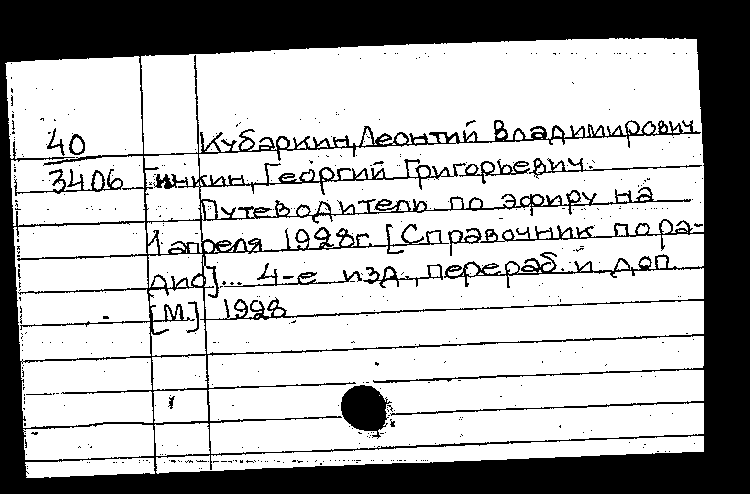 40
3406
Кубаркин, Леонтий Владимирович
Гинкин, Георгий Григорьевич.
Путеводитель по эфиру на
1 апреля 1928г. [Справочник по ра-
дио]... 4-е изд., перераб. и доп.
[М.] 1928